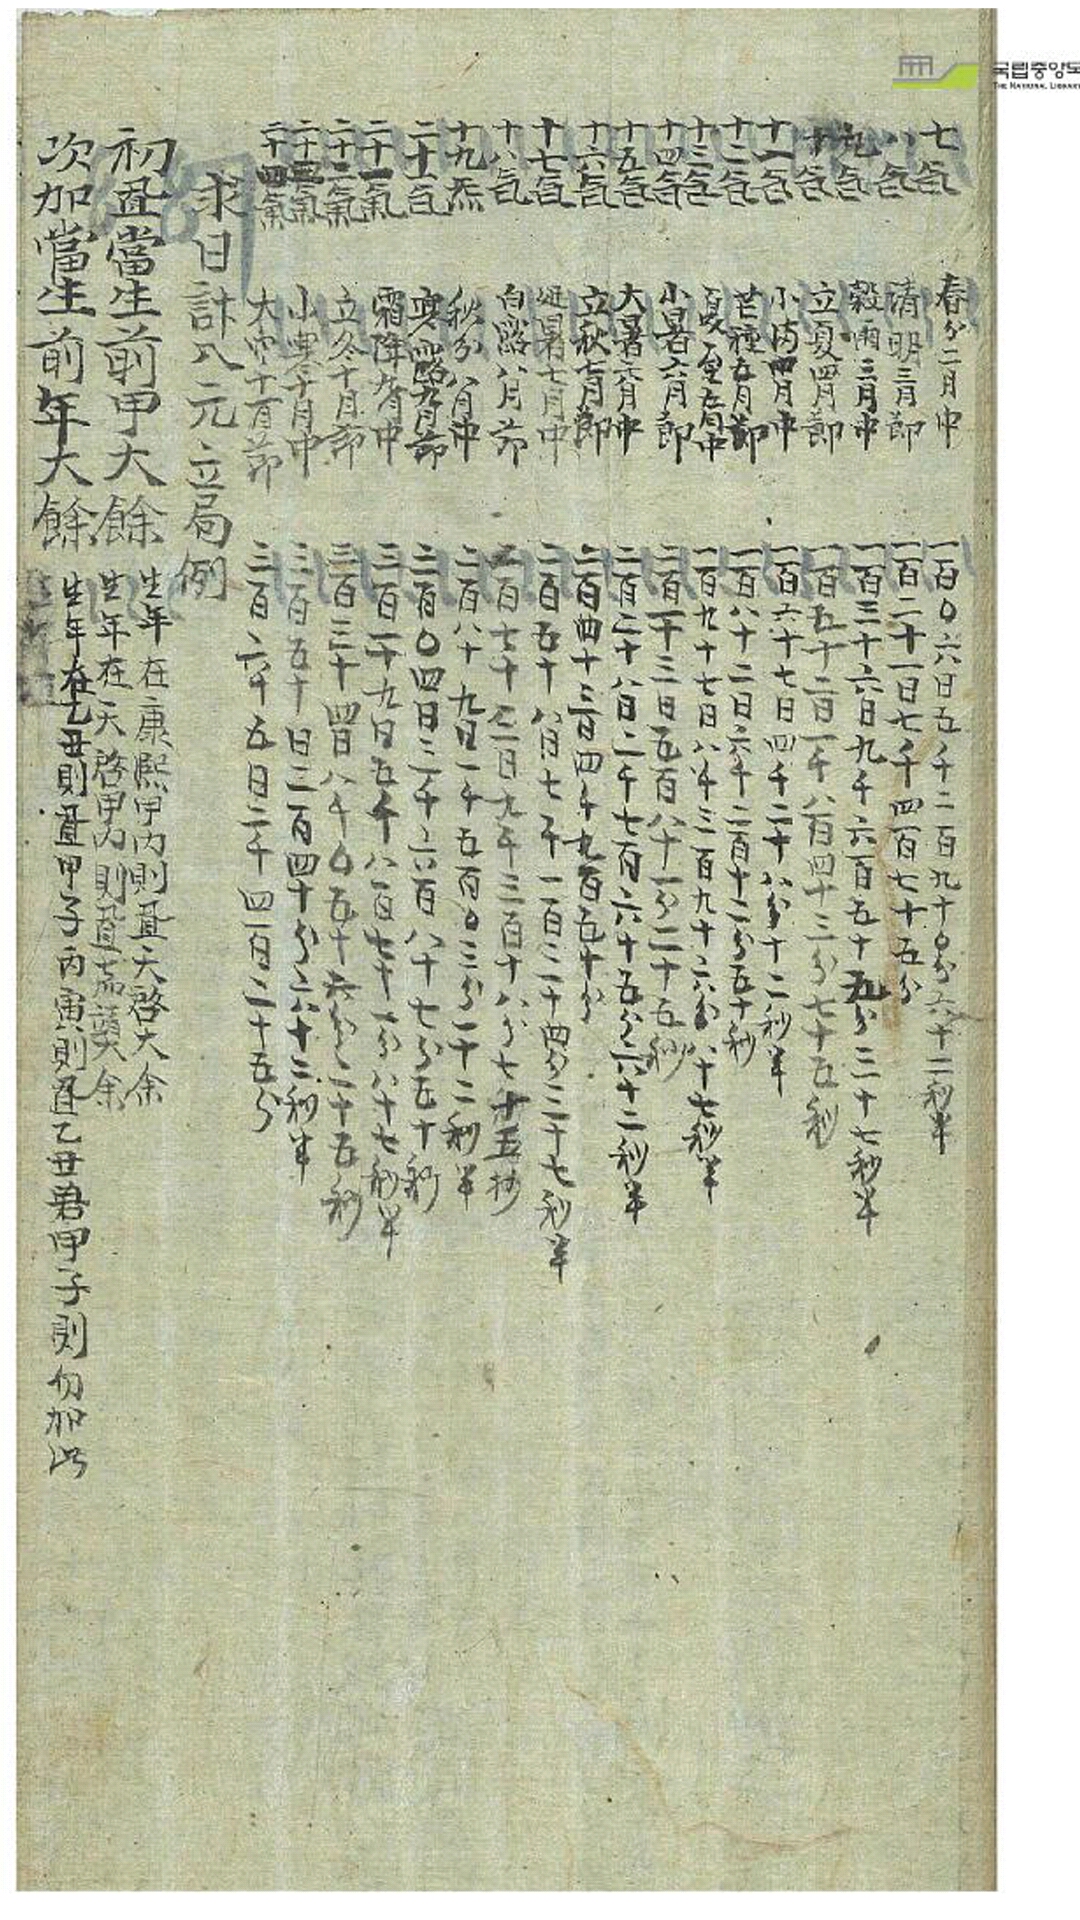 七氣 春分二月中 一百〇六日五千二百九十〇分六十二秒半
八氣 清明三月節 一百二十一日七千四百七十五分
九氣 穀雨三月中 一百三十六日九千六百五十九分三十七秒半
十氣 立夏四月節 一百五十二日一千八百四十三分七十五秒
十一氣 小滿四月中 一百六十七日四千二十八分十二秒半
十二氣 芒種五月節 一百八十二日六千二百十二分五十秒
十三氣 夏至五月中 一百九十七日八千三百九十六分八十七秒半
十四氣 小暑六月節 二百一十三日五百八十一分二十五秒
十五氣 大暑六月中 二百二十八日二千七百六十五分六十二秒半
十六氣 立秋七月節 二百四十三日四千九百五十分
十七氣 處暑七月中 二百五十八日七千一百三十四分三十七秒半
十八氣 白露八月節 二百七十三日九千三百十八分七十五抄
十九炁 秋分八月中 二百八十九日一千五百〇三分一十二秒半
二十氣 寒露九月節 三百〇四日三千六百八十七分五十秒
二十一氣 霜降九月中 三百一十九日五千八百七十一分八十七秒半
二十二氣 立冬十月節 三百三十四日八千〇五十六分二十五秒
二十三氣 小雪十月中 三百五十日二百四十分六十二秒半
二十四氣 大雪十一月節 三百六十五日二千四百二十五分
求日計八元立局例
初置當生前甲大餘 生年在康熙甲內則置天啓大余
生年在天啓甲內則置萬曆大余
次加當生前年大餘 生年在乙丑則置甲子丙寅則置乙丑若甲子則勿加此
국립중앙도
THE NATIONAL LIBRARY